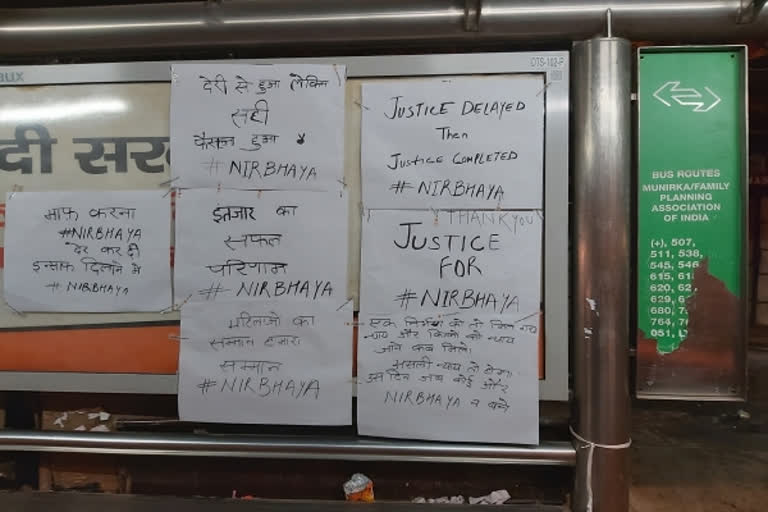 aux
OTS-102-P
दी सर
माफ करना
#NIRBHAYA
देर कर दी
इन्साफ दिलाने मे
# NIRBHAYA
देरी से हुआ लेकिन
सही
फैसला हुआ
# NIRBHAYA
इंतजार का
सफल
परिणाम
# NIRBHAYA
महिलाओ का
सम्मान हमारा
सम्मान
# NIRBHAYA
JUSTICE DELAYED
Then
JUSTICE COMPLETED
# NIRBHAYA
THANK YOU
JUSTICE
FOR
# NIRBHAYA
एक निर्भया को तो मिल गया
न्याय और कितनो को न्याय
जाने कब मिले।
असली न्याय तो होगा
उस दिन जब कोई और
NIRBHAYA न बने
BUS ROUTES
MUNIRKA/FAMILY
PLANNING
ASSOCIATION
OF INDIA
(+), 507,
511, 538,
545, 546
615, 61
620, 62
629, 6
680, 7
764, 7
051, L